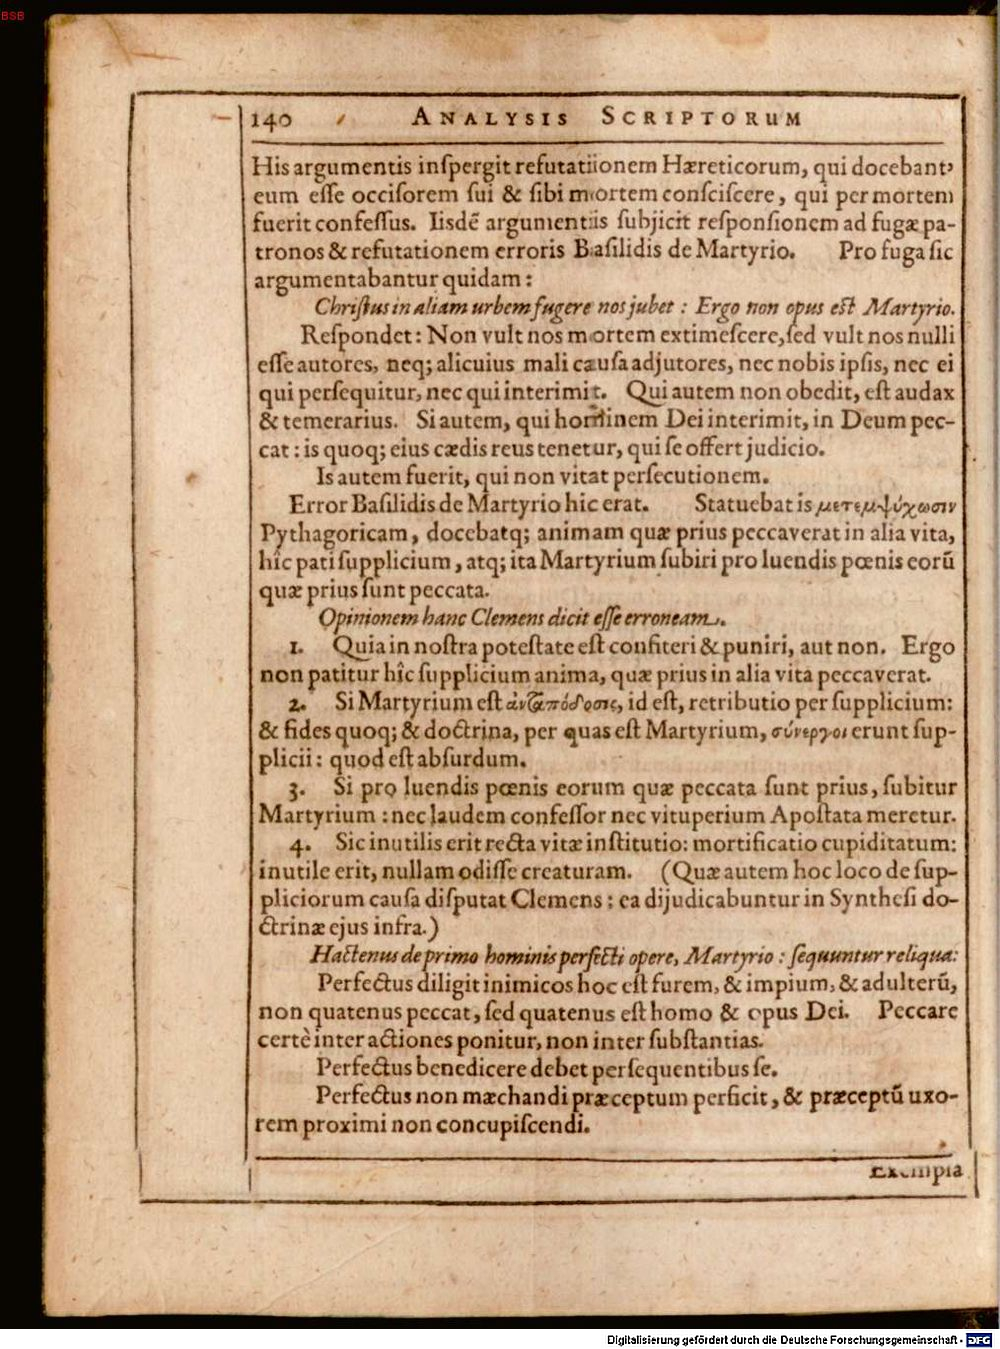 BSB
140 ANALYSIS SCRIPTORUM
His argumentis inſpergit refutatiionem Hæreticorum, qui docebant,
eum eſſe occiſorem ſui & ſibi mortem conſciſcere, qui per mortem
fuerit confeſſus. Iisdē argumentiis ſubjicit reſponſionem ad fugæ pa-
tronos & refutationem erroris Baſilidis de Martyrio. Pro fuga ſic
argumentabantur quidam:
Chriſtus in aliam urbem fugere nos jubet: Ergo non opus eſt Martyrio.
Reſpondet: Non vult nos mortem extimeſcere, ſed vult nos nulli
eſſe autores, neq; alicuius mali cauſa adjutores, nec nobis ipſis, nec ei
qui perſequitur, nec qui interimit. Qui autem non obedit, eſt audax
& temerarius. Si autem, qui hominem Dei interimit, in Deum pec-
cat: is quoq; eius cædis reus tenetur, qui ſe offert judicio.
Is autem fuerit, qui non vitat perſecutionem.
Error Baſilidis de Martyrio hic erat. Statuebat is μετεμψύχωσιν
Pythagoricam, docebatq; animam quæ prius peccaverat in alia vita,
hîc pati ſupplicium, atq; ita Martyrium ſubiri pro luendis pœnis eorū
quæ prius ſunt peccata.
Opinionem hanc Clemens dicit eſſe erroneam.
1. Quia in noſtra poteſtate eſt confiteri & puniri, aut non. Ergo
non patitur hîc ſupplicium anima, quæ prius in alia vita peccaverat.
2. Si Martyrium eſt ἀνταπόδοσις, id eſt, retributio per ſupplicium:
& fides quoq; & doctrina, per quas eſt Martyrium, σύνεργοι erunt ſup-
plicii: quod eſt abſurdum.
3. Si pro luendis pœnis eorum quæ peccata ſunt prius, ſubitur
Martyrium: nec laudem confeſſor nec vituperium Apoſtata meretur.
4. Sic inutilis erit recta vitæ inſtitutio: mortificatio cupiditatum:
inutile erit, nullam odiſſe creaturam. (Quæ autem hoc loco de ſup-
pliciorum cauſa diſputat Clemens: ea dijudicabuntur in Syntheſi do-
ctrinæ ejus infra.)
Hactenus de primo hominis perfecti opere, Martyrio: ſequuntur reliqua:
Perfectus diligit inimicos hoc eſt furem, & impium, & adulterū,
non quatenus peccat, ſed quatenus eſt homo & opus Dei. Peccare
certè inter actiones ponitur, non inter ſubſtantias.
Perfectus benedicere debet perſequentibus ſe.
Perfectus non mæchandi præceptum perficit, & præceptū uxo-
rem proximi non concupiſcendi.
Exempla
Digitalisierung gefördert durch die Deutsche Forschungsgemeinschaft - DFG